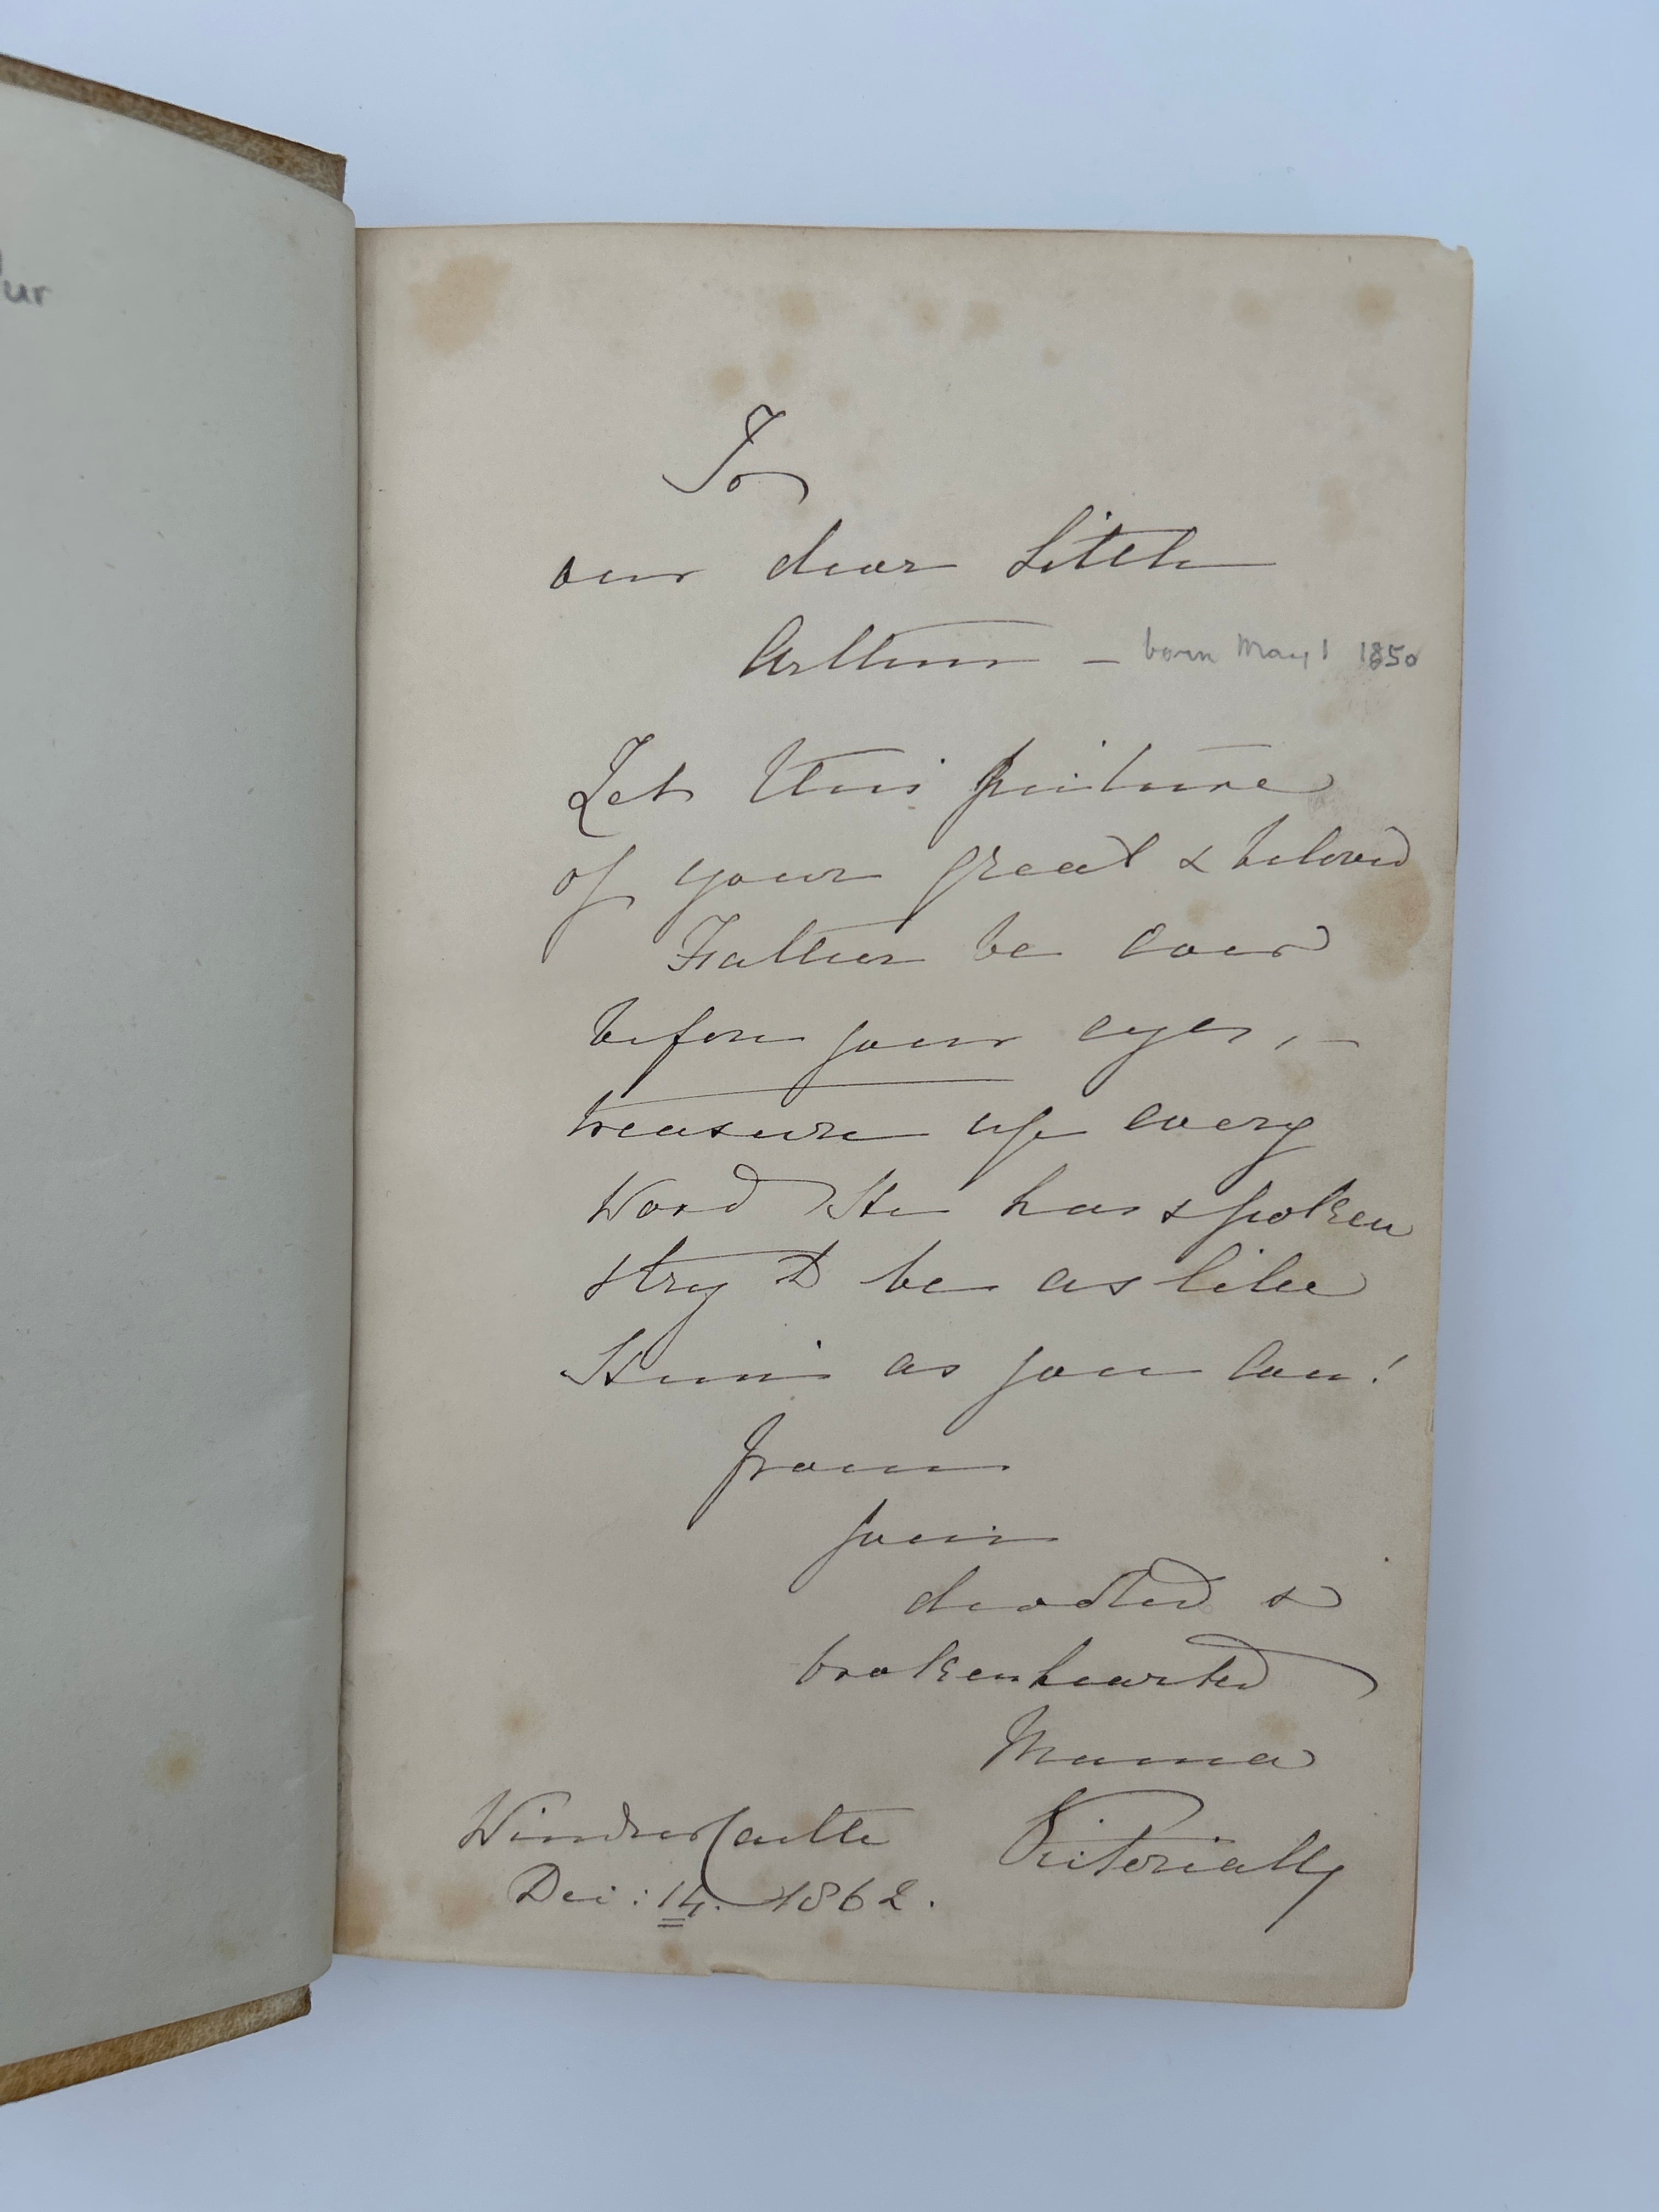 ur
To
our dear little
Arthur – born May 1 1850
Let this picture
of your great & beloved
Father be ever
before your eyes, –
treasure up every
word He has spoken
& try to be as like
Him as you can!
From
your
devoted &
brokenhearted
Mama
Windsor Castle
Victoria
Dec: 14. 1862.